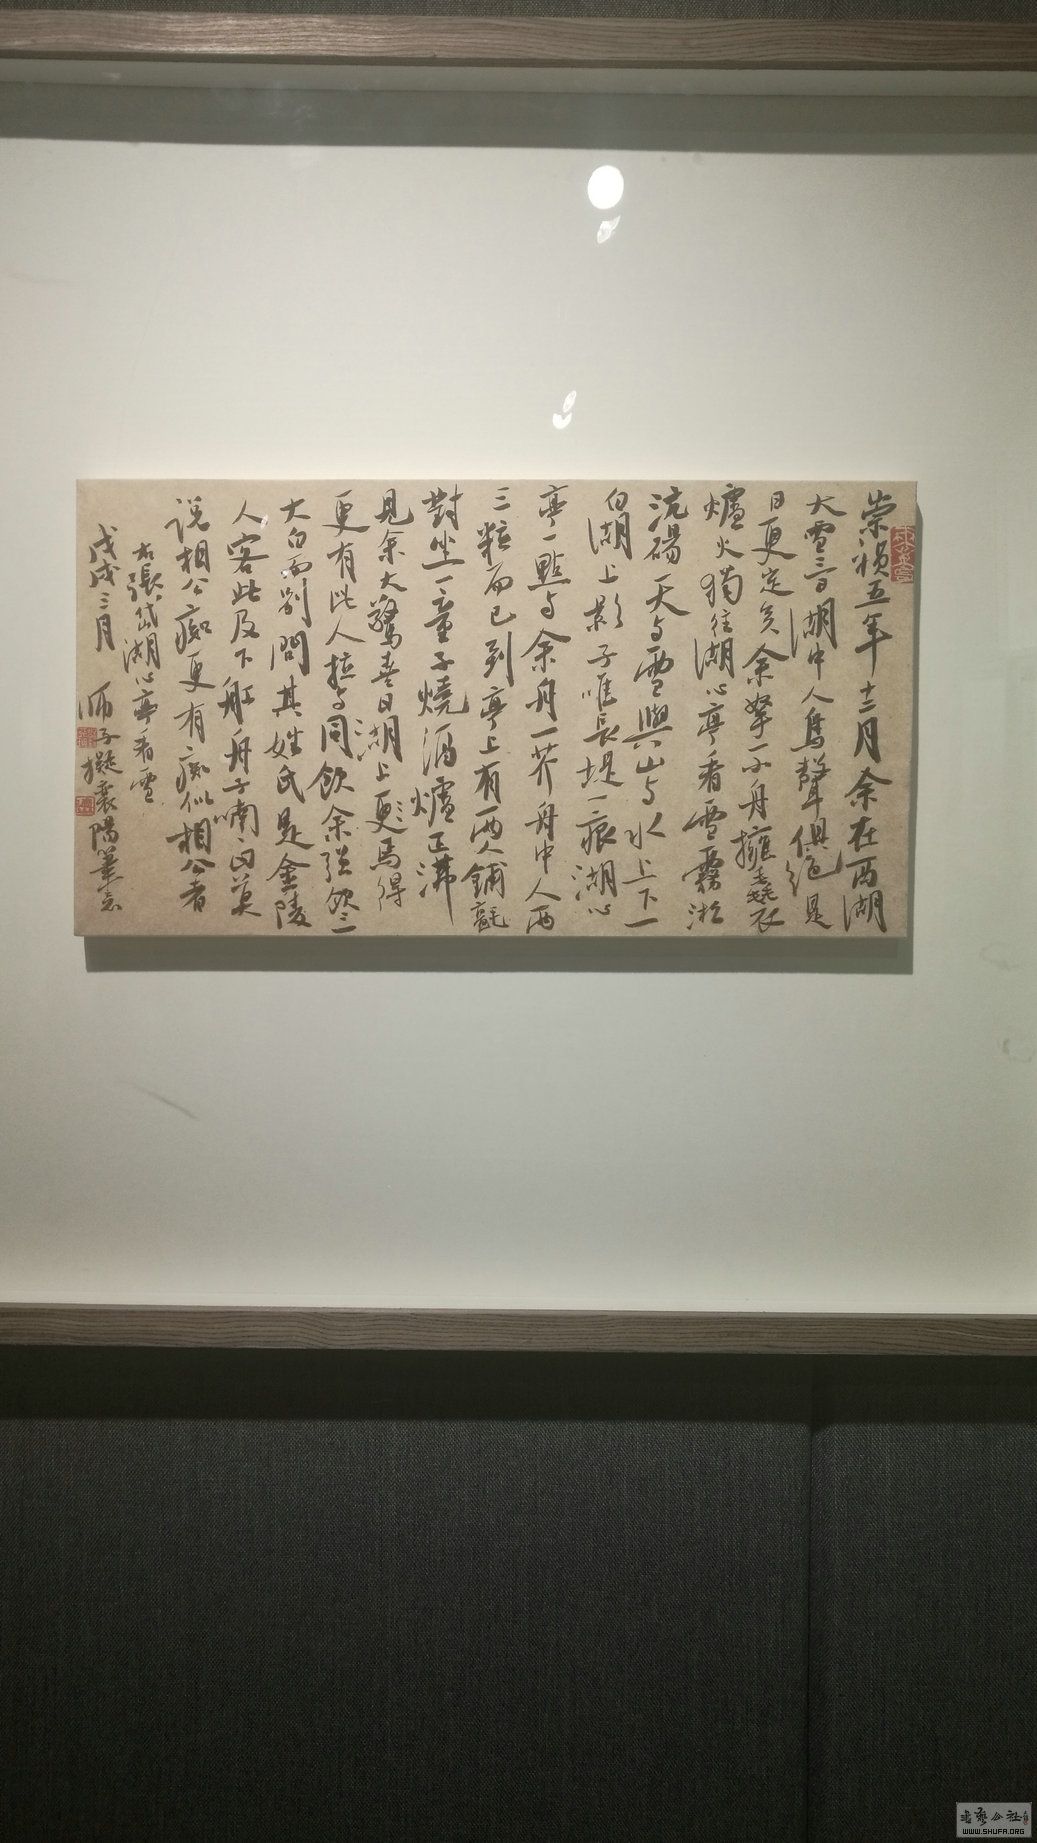 崇禎五年十二月余在西湖
大雪三日湖中人鳥聲俱絶是
日更定矣余拏一小舟擁毳衣
爐火獨往湖心亭看雪霧淞
沆碭天与雪與山与水上下一
白湖上影子唯長堤一痕湖心
亭一點与余舟一芥舟中人兩
三粒而已到亭上有兩人鋪氈
對坐一童子燒酒爐正沸
見余大驚喜曰湖上更焉得
更有此人拉与同飲余強飲三
大白而別問其姓氏是金陵
人客此及下船舟子喃曰莫
说相公痴更有痴似相公者
右張岱湖心亭看雪
戊戌三月
WWW.SHUFA.ORG